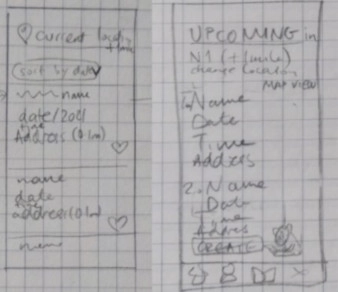 Current location
sort by date
name
date/2001
Address (0.1m)
name
date
address (0.1m)
name
UPCOMING in
N1 (+1 mile)
change location
MAP VIEW
1. Name
Date
Time
Address
2. Name
Date
Time
Address
CREATE